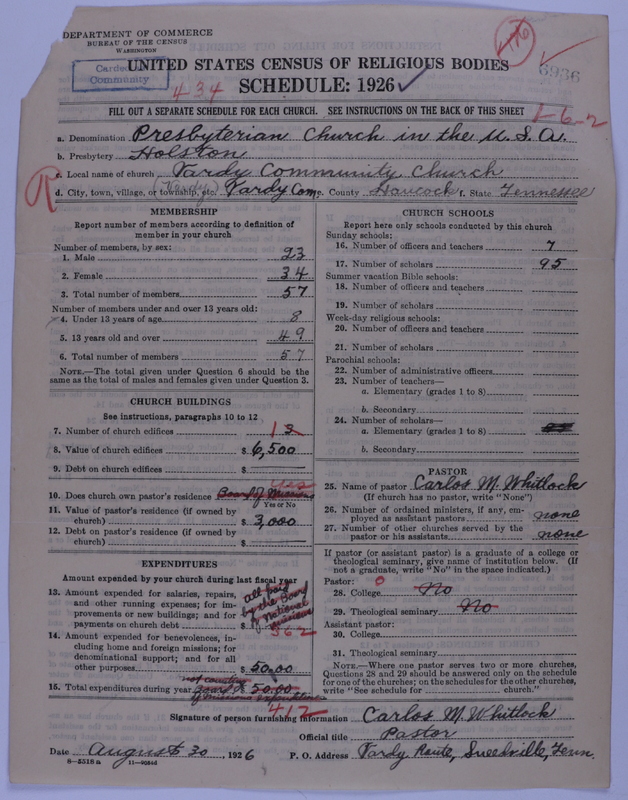 DEPARTMENT OF COMMERCE
BUREAU OF THE CENSUS
WASHINGTON
Carded
Community
434
6936
UNITED STATES CENSUS OF RELIGIOUS BODIES
SCHEDULE: 1926
FILL OUT A SEPARATE SCHEDULE FOR EACH CHURCH. SEE INSTRUCTIONS ON THE BACK OF THIS SHEET
a. Denomination Presbyterian Church in the U.S.A.
b. Presbytery Holston
c. Local name of church Vardy Community Church
d. City, town, village, or township, etc. (Vardy) Vardy Com. e. County Hancock f. State Tennessee
MEMBERSHIP
Report number of members according to definition of
member in your church
Number of members, by sex:
1. Male 23
2. Female 34
3. Total number of members 57
Number of members under and over 13 years old:
4. Under 13 years of age 8
5. 13 years old and over 49
6. Total number of members 57
NOTE.—The total given under Question 6 should be
same as the total of males and females given under Question 3.
CHURCH BUILDINGS
See instructions, paragraphs 10 to 12
7. Number of church edifices 1 3
8. Value of church edifices $ 6,500
9. Debt on church edifices $
10. Does church own pastor's residence Board of Missions Yes
Yes or No
11. Value of pastor's residence (if owned by
church) $ 3,000
12. Debt on pastor's residence (if owned by
church) $
EXPENDITURES
Amount expended by your church during last fiscal year
13. Amount expended for salaries, repairs,
and other running expenses; for im-
provements or new buildings; and for
payments on church debt $
all paid
by the Board
of National
Missions
362
14. Amount expended for benevolences, in-
cluding home and foreign missions; for
denominational support; and for all
other purposes $ 50.00
15. Total expenditures during year $ 50.00
not counting
Board
of Missions expenditures
412
CHURCH SCHOOLS
Report here only schools conducted by this church
Sunday schools:
16. Number of officers and teachers 7
17. Number of scholars 95
Summer vacation Bible schools:
18. Number of officers and teachers
19. Number of scholars
Week-day religious schools:
20. Number of officers and teachers
21. Number of scholars
Parochial schools:
22. Number of administrative officers
23. Number of teachers—
a. Elementary (grades 1 to 8)
b. Secondary
24. Number of scholars—
a. Elementary (grades 1 to 8)
b. Secondary
PASTOR
25. Name of pastor Carlos M. Whitlock
(If church has no pastor, write "None")
26. Number of ordained ministers, if any, em-
ployed as assistant pastors none
27. Number of other churches served by the
pastor or his assistants none
If pastor (or assistant pastor) is a graduate of a college or
theological seminary, give name of institution below. (If
not a graduate, write "No" in the space indicated.)
Pastor: 0
28. College No
29. Theological seminary No
Assistant pastor:
30. College
31. Theological seminary
NOTE.—Where one pastor serves two or more churches,
Questions 28 and 29 should be answered only on the schedule
for one of the churches; on the schedules for the other churches,
write "See schedule for church."
Signature of person furnishing information Carlos M. Whitlock
Official title Pastor
Date August 30, 1926 P. O. Address Vardy Route, Sneedville, Tenn.
8-5518 a